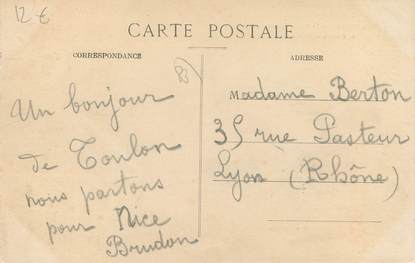 12 €
CARTE POSTALE
CORRESPONDANCE
ADRESSE
83
Un bonjour
de Toulon
nous partons
pour Nice
Brudon
Madame Berton
35 rue Pasteur
Lyon (Rhône)